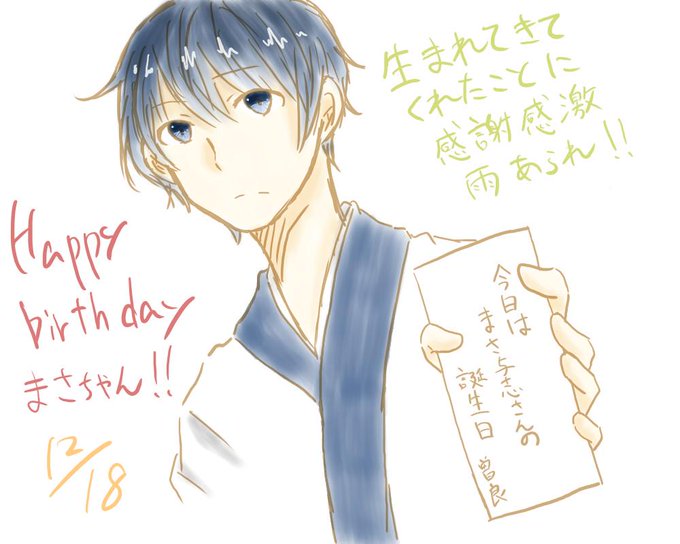 生まれてきて
くれたことに
感謝感激
雨あられ!!
Happy
birthday
まさちゃん!!
12/18
今日は
まさ与志さんの
誕生日
曽良